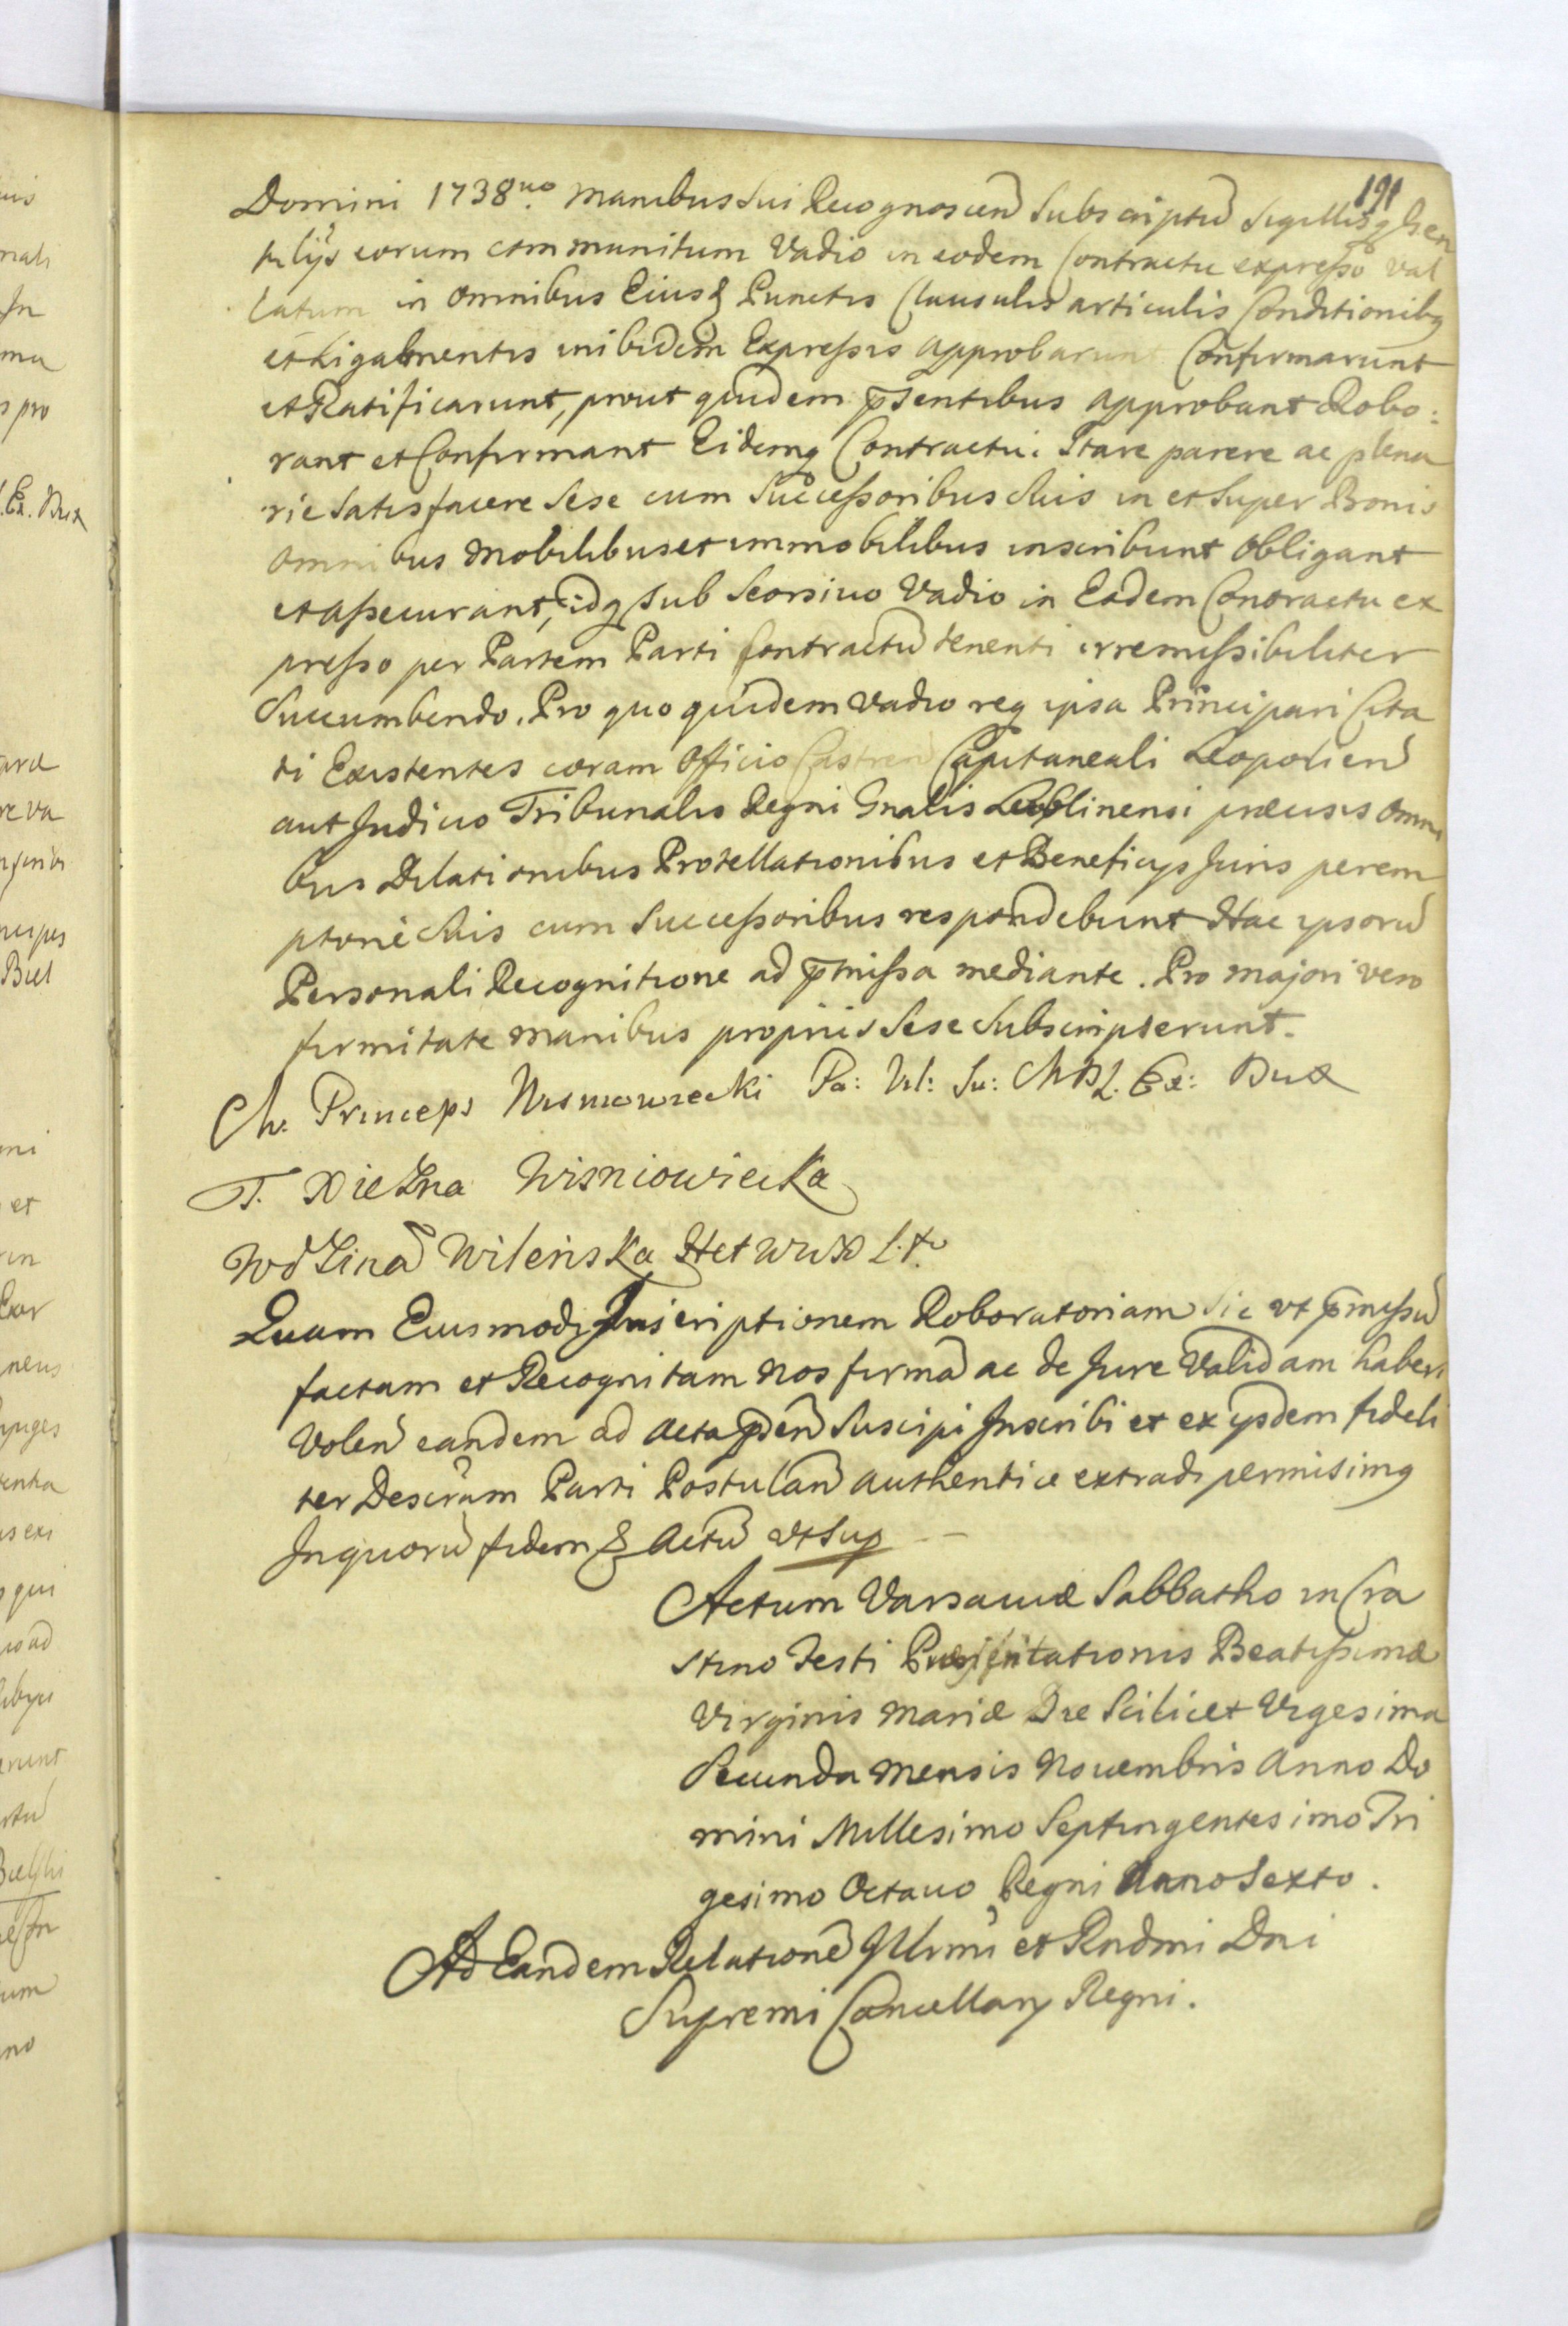 191
Domini 1738uo. Manibus Sui Recognoscen̄ Subscriptū Sigillisq Gen
tilijs eorum communitum Vadio in eodem Contractu expresso val
latum in omnibus Eius & Punctis Clausulis articulis Conditionibq
et Ligamentis inibidem Expressis approbarunt Confirmarunt
et Ratificarunt, prout quidem p̄sentibus approbant Robo:
rant et Confirmant Eidemq Contractui Stare parere ac plena
rie Satisfacere Sese cum Successoribus Suis in et Super Bonis
omnibus Mobilibus et immobilibus inscribunt obligant
et assecurant, idq Sub Seorsivo Vadio in Eodem Contractu ex
presso per Partem Parti Contractū tenenti irremissibiliter
Succumbendo. Pro quo quidem Vadio req ipsa Principari Cita
ti Existentes coram Officio Castren̄ Capitaneali Leopolien̄
aut Judicio Tribunalis Regni Gnalis Lublinensi præcisis omni
bus Dilationibus Protellationibus et Beneficijs Juris perem
ptorie Suis cum Successoribus respondebunt Hac ipsorū
Personali Recognitione ad p̄missa mediante. Pro majori vero
firmitate manibus proprijs Sese Subscripserunt.
Ch. Princeps Wisniowiecki Pa: Vil: Su: MDL. Ex: Dux
T. XieZna Wisniowiecka
WdZina Wilenska Het WWX L.
Quam Eiusmodi Inscriptionem Roboratoriam Sic vt p̄missū
factam et Recognitam Nos firmā ac de Jure Validam haberi
Volen̄ eandem ad Acta p̄sen̄ Suscipi Inscribi et ex ijsdem fideli
ter Descrām Parti Postulan̄ authentice extradi permisimq
In quorū fidem & Actū vt Sup
Actum Varsaviæ Sabbatho in Cra
stino Festi Præsentationis Beatissimæ
Virginis Mariæ Die Scilicet Vigesima
Secunda Mensis Novembris Anno Do
mini Millesimo Septingentesimo Tri
gesimo Octavo, Regni Anno Sexto.
Ad Eandem Relationē Illrmi et Rndmi Dni
Supremi Cancellarij Regni.